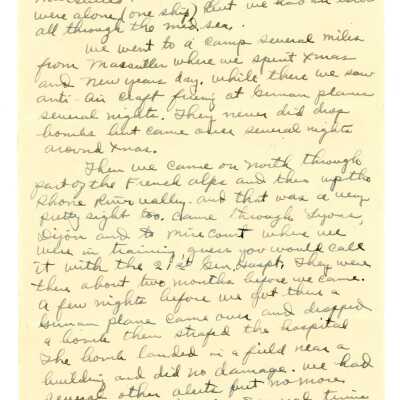 were alone (one ship) but we had an
all through the med. sea.
We went to a camp several miles
from Marsailler where we spent Xmas
and New years day. While there we saw
anti-air craft firing at German planes
several nights. They never did drop
bombs but came over several nights
around Xmas.
Then we came on north through
part of the French alps and then up the
Rhone River valley. and that was a very
pretty sight too. Came through Lyons,
Dijon and to Mirecourt where we
were in training, guess you would call
it with the 21st Gen. Hospt. They were
there about two months before we came.
A few nights before we got there a
German plane came over and dropped
a bomb then strafed the hospital
The bomb landed in a field near a
building and did no damage. We had
several other alerts but no more